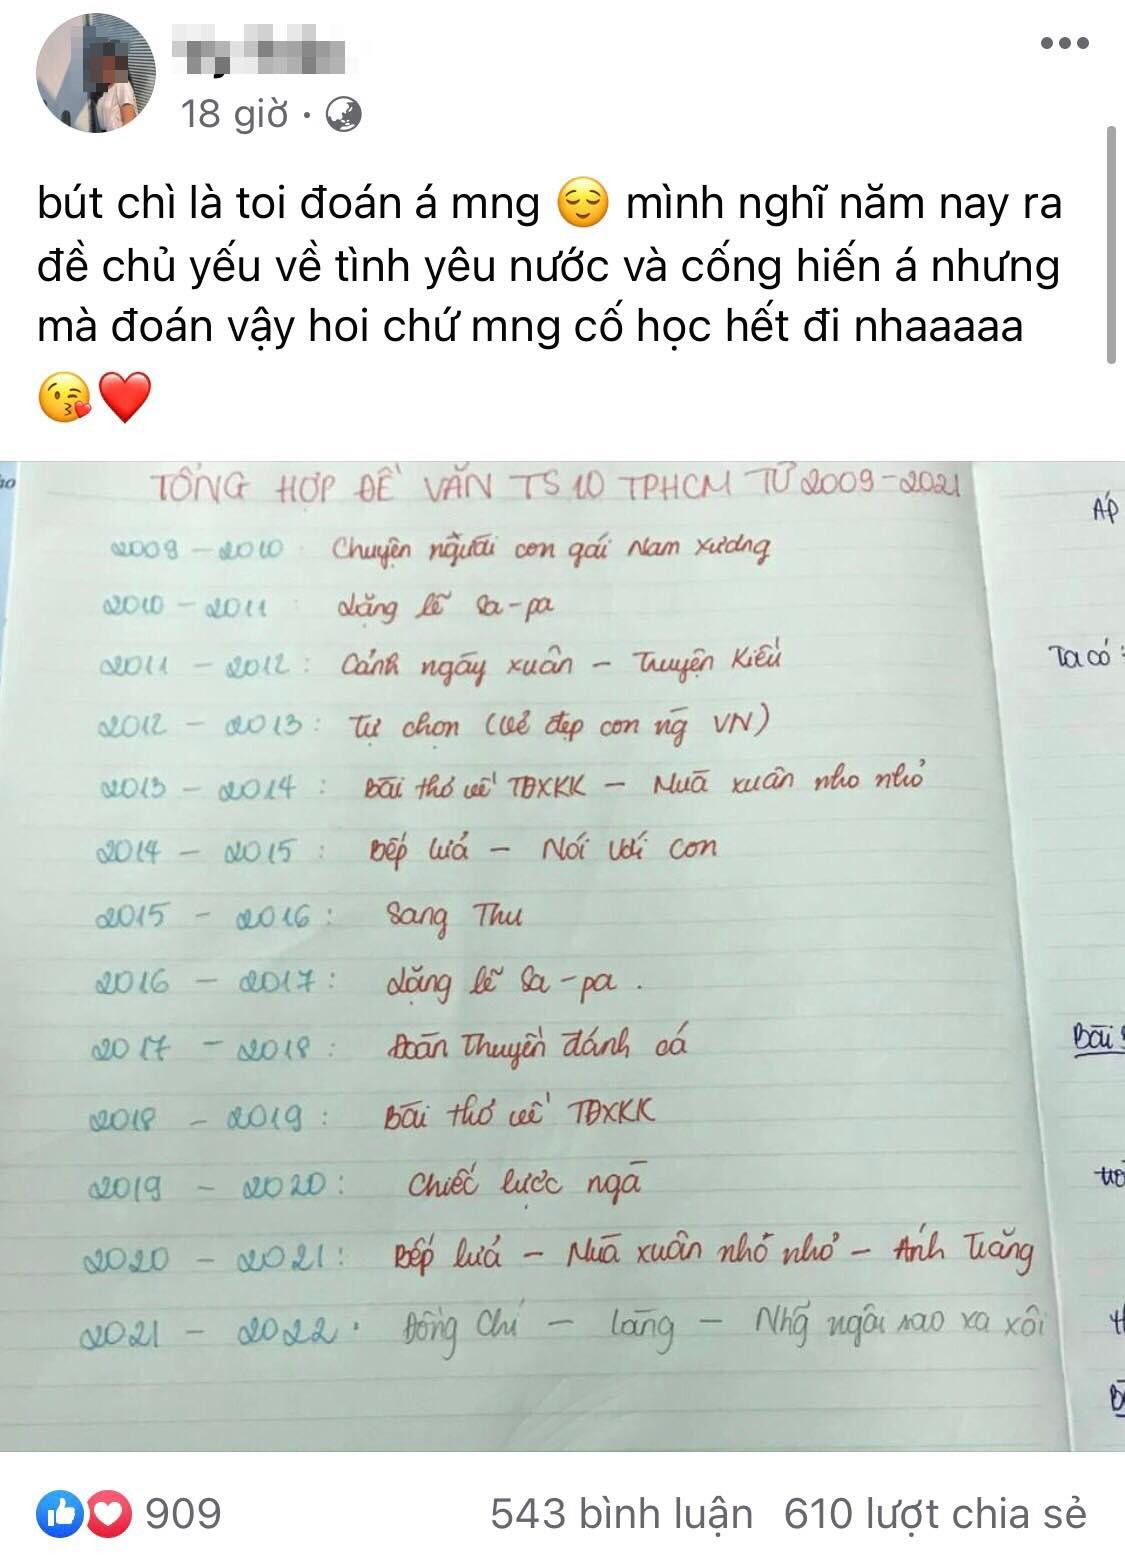 18 giờ ·
bút chì là toi đoán á mng 😌 mình nghĩ năm nay ra
đề chủ yếu về tình yêu nước và cống hiến á nhưng
mà đoán vậy hoi chứ mng cố học hết đi nhaaaaa
😘❤️
TỔNG HỢP ĐỀ VĂN TS 10 TPHCM TỪ 2009-2021
2009 - 2010 Chuyện người con gái Nam Xương
2010 - 2011 : Lặng lẽ Sa-pa
2011 - 2012 : Cảnh ngày xuân - Truyện Kiều
2012 - 2013 : Tự chọn (Vẻ đẹp con ng̃ VN)
2013 - 2014 : Bài thơ về TĐXKK - Mùa xuân nho nhỏ
2014 - 2015 : Bếp lửa - Nói với con
2015 - 2016 : Sang Thu
2016 - 2017 : Lặng lẽ Sa-pa .
2017 - 2018 : Đoàn Thuyền đánh cá
2018 - 2019 : Bài thơ về TĐXKK
2019 - 2020 : Chiếc lược ngà
2020 - 2021 : Bếp lửa - Mùa xuân nhỏ nhỏ - Ánh Trăng
2021 - 2022 . Đồng Chí - Làng - Nhg̃ ngôi sao xa xôi
ÁP
Ta có :
Bài
909 543 bình luận 610 lượt chia sẻ